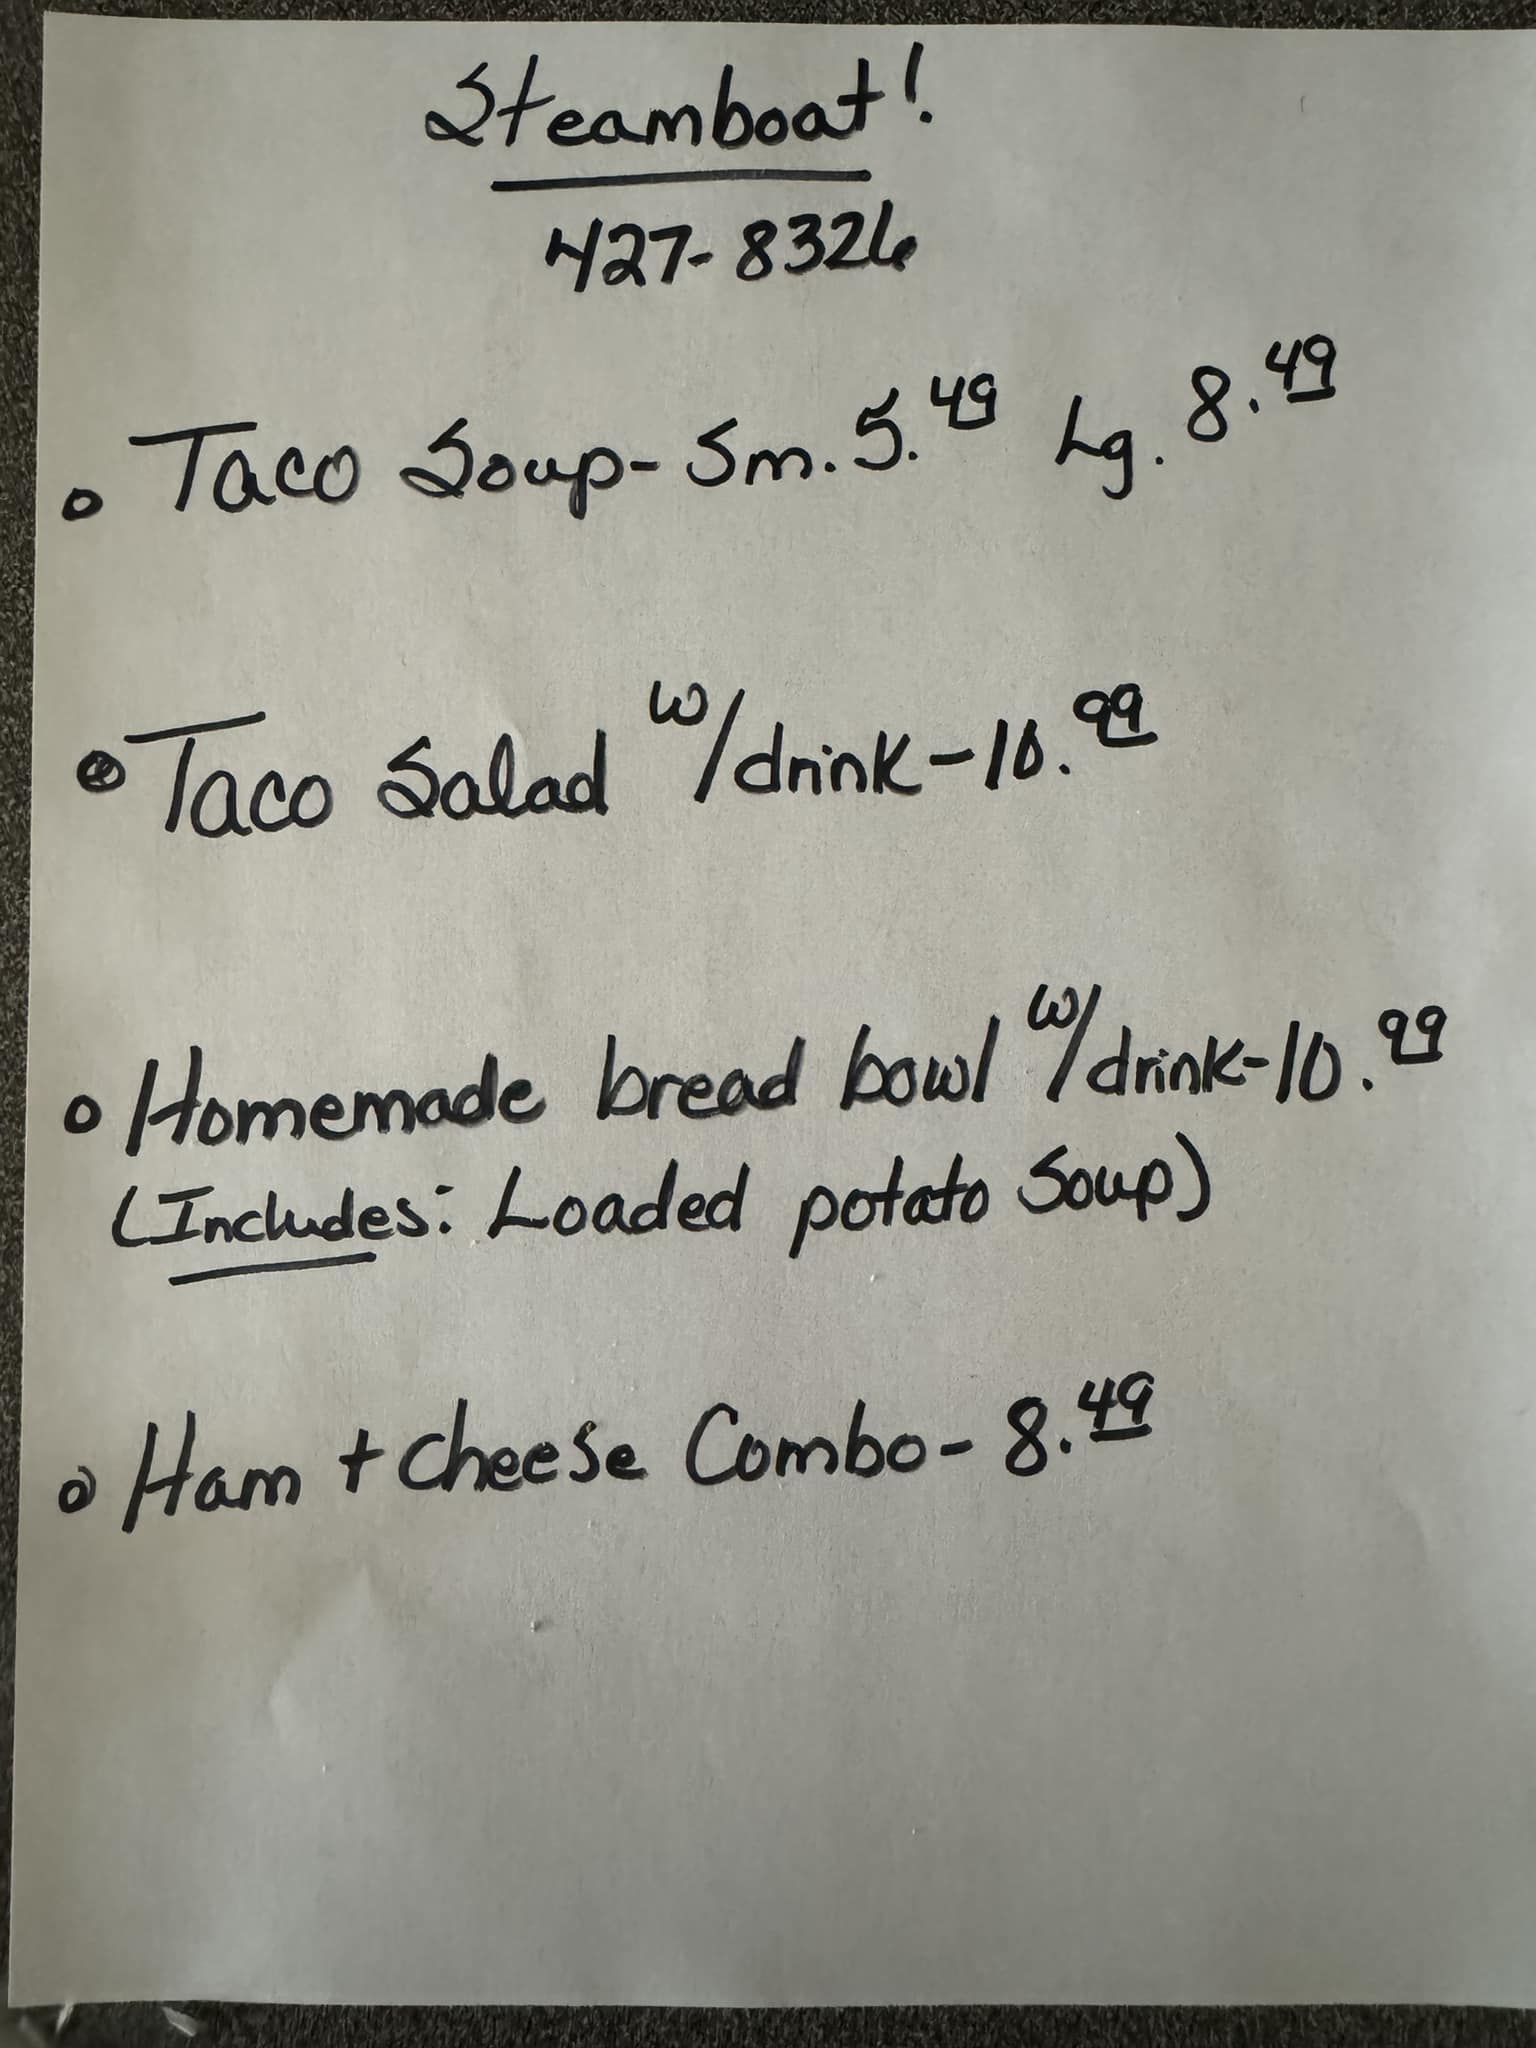 Steamboat!
427-8326
o Taco Soup- Sm. 5.49 Lg. 8.49
o Taco Salad w/drink-10.99
o Homemade bread bowl w/drink-10.99
(Includes: Loaded potato Soup)
o Ham + cheese Combo- 8.49